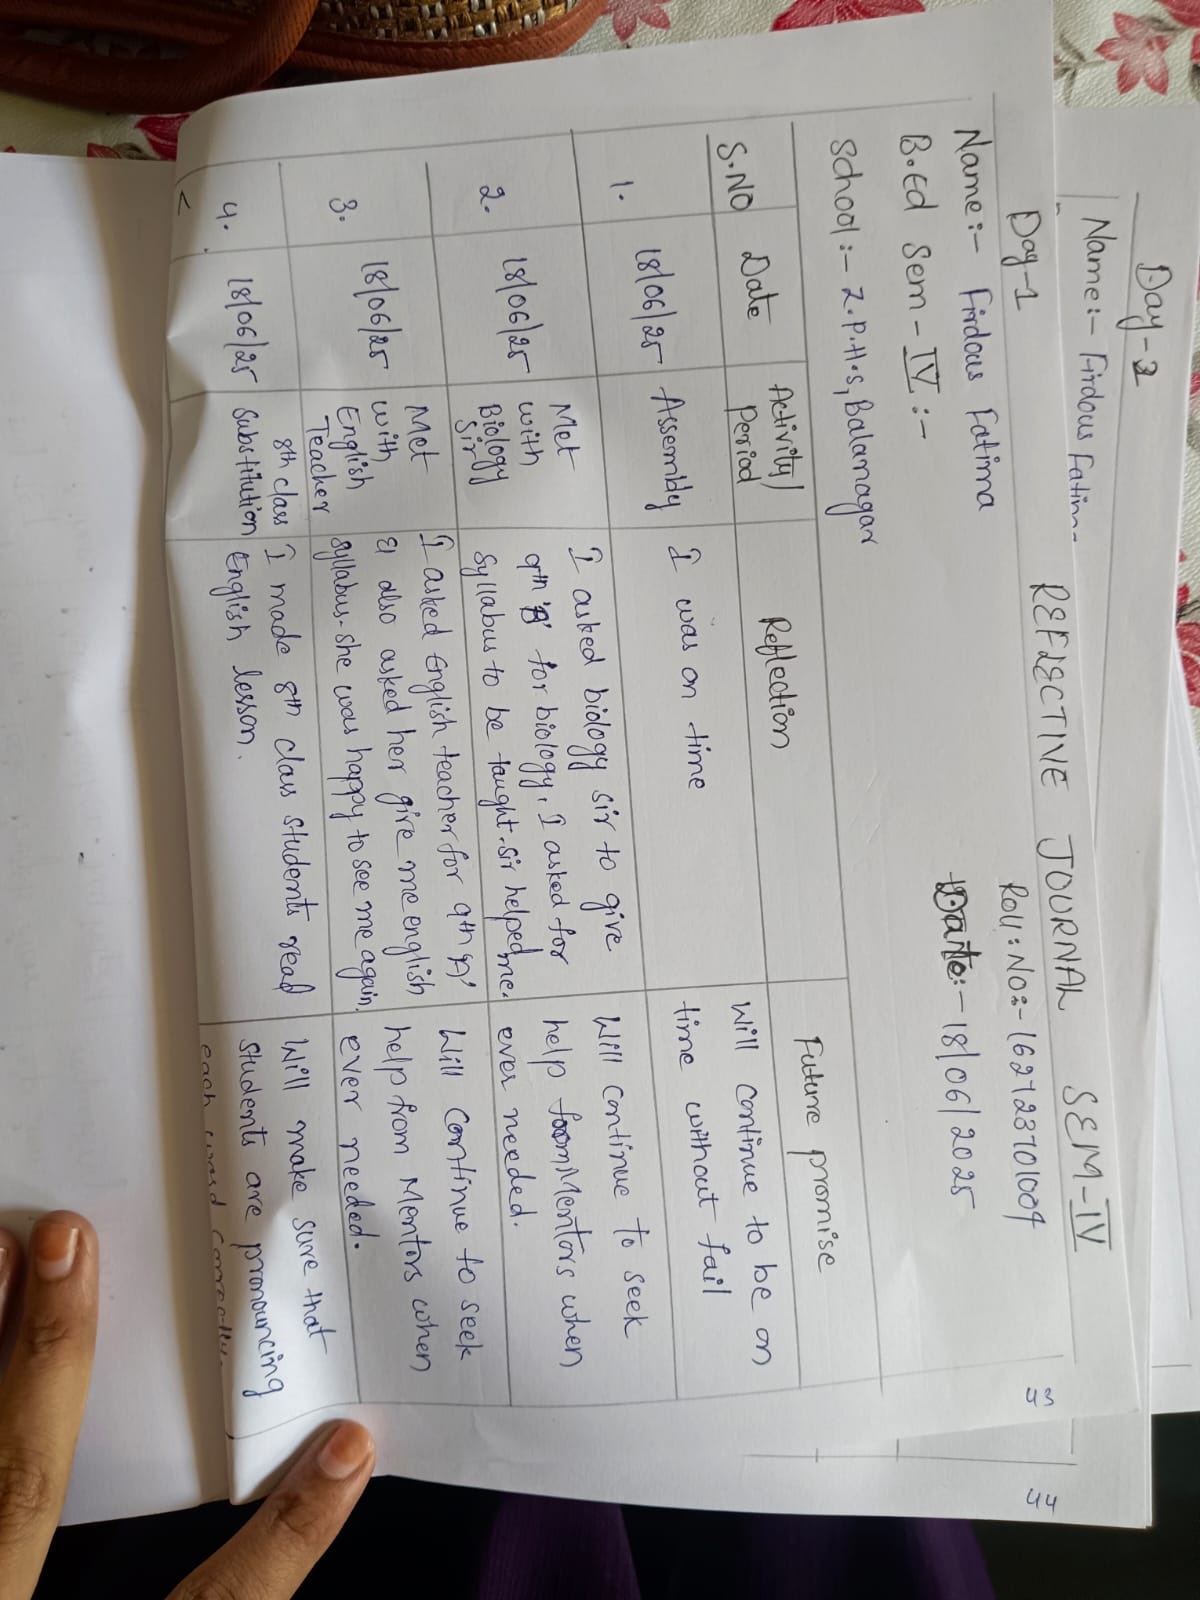 Day-2
Name:- Firdous
44
REFLECTIVE JOURNAL SEM-IV
43
Day-1
Roll:No:-162123701009
Name:- Firdous Fatima
Date:-18/06/2025
B.Ed Sem-IV:-
School:- Z.P.H.S, Balanagar
S.NO Date Activity/ Reflection Future promise
Period
1. 18/06/25 Assembly I was on time Will continue to be on
time without fail
2. 18/06/25 Met I asked biology sir to give Will continue to seek
with 9th 'A' for biology, I asked for help from Mentors when
Biology syllabus to be taught. sir helped me. ever needed.
Sir
3. 18/06/25 Met I asked English teacher for 9th 'A' Will continue to seek
with & also asked her give me english help from Mentors when
English syllabus. she was happy to see me again. ever needed.
Teacher
4. 18/06/25 8th class I made 8th class students read Will make sure that
Substitution English lesson. students are pronouncing
each word